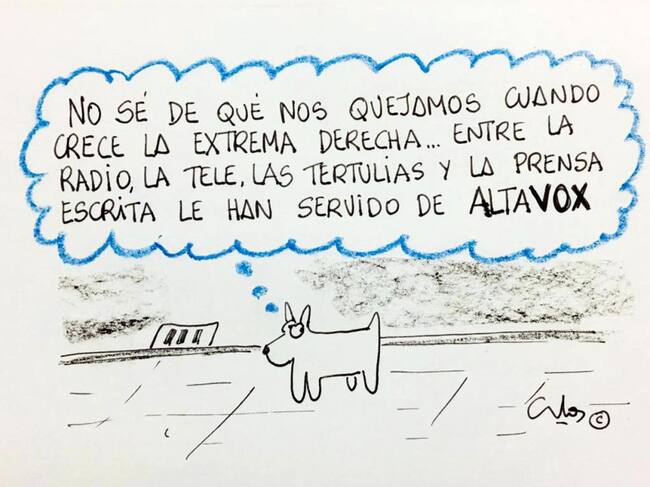 NO SÉ DE QUÉ NOS QUEJAMOS CUANDO
CRECE LA EXTREMA DERECHA... ENTRE LA
RADIO, LA TELE, LAS TERTULIAS Y LA PRENSA
ESCRITA LE HAN SERVIDO DE ALTAVOX
©